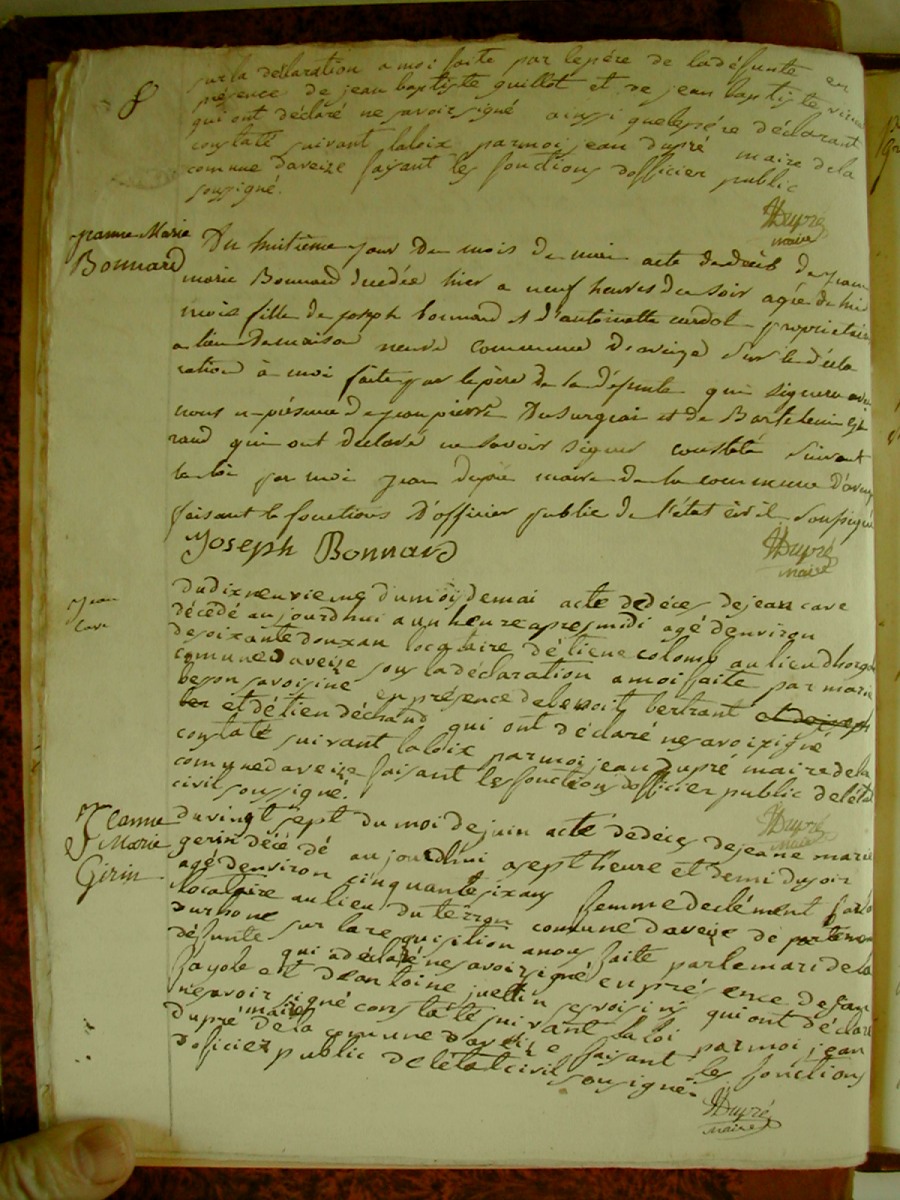 8
sur la déclaration a moi faite par lepére de ladéfunte en
présence de jean baptiste guillot et de jean baptiste
qui ont déclaré ne savoir signé ainsi quelepére déclarant
constaté suivant laloix parmoi jean dupré maire dela
comune daveize faisant les fonctions dofficier public
soussigné.
JDupré
maire
Jeanne Marie
Bonnard
Du huitième jour du mois de mai acte de décès de jeanne
marie Bonnard decédée hier a neuf heures du soir agée de huit
mois fille de joseph bonnard et d'antoinette propriétaire
a lieu de maison neuve commune d'aveize sur la décla
ration à moi faite par le père de la défunte qui signera avec
nous en présence de jean pierre Dusurgeai et de Barthelemi
raud qui ont declaré ne savoir signer constaté suivant
la loi par moi jean dupré maire de la commune d'aveize
faisant les fonctions d'officier public de l'état civil soussigné
Joseph Bonnard
JDupré
maire
jean
cave
dudixneuvieme dumoisdemai acte dedéces dejean cave
décédé aujourdhui a unheure apresmidi agé denviron
desoixantedouxan locataire détiene colomb aulieudhorge
comune daveize sous ladéclaration amoifaite par marie
beson savoisine enprésence debenoit bertrant et dejoseph
ber et détien déchaud qui ont déclaré nesavoixigné
constaté suivant laloix parmoi jean dupré maire dela
comune daveize faisant lesfonctions dofficier public delétat
civil soussigné.
JDupré
Maire
Jeanne
Marie
Girin
duvingt sept du moi dejuin acte dedéces dejeane marie
gerin décédé aujourdhui asept heure et demi dusoir
agé denviron cinquantesixans femme declément
locataire aulieu du terron comune daveize de
durhone sur la requisition anous faite parlemari dela
défunte qui adéclaré nesavoirsigné enprésence dejean
fayole et deantoine juttin sesvoisins qui ont déclaré
nesavoir signé constaté suivant la loi parmoi jean
dupré maire dela comune daveize faisant les fonctions
dofficier public de létat civil soussigné.
JDupré
maire